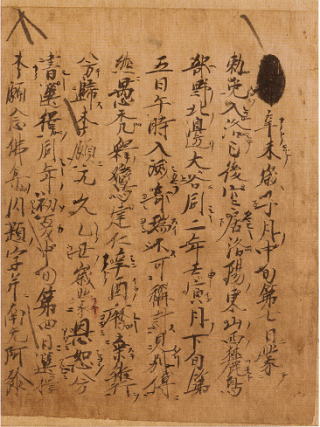 辛未歳子月中旬第七日蒙
勅免入洛已後空居洛陽東山西麓鳥
部野北邊大谷同二年壬申寅月下旬第
五日午時入滅奇瑞不可稱計見別傳
然愚禿釋鸞建仁辛酉曆棄雜行
兮歸本願元久乙丑歳蒙恩恕兮
書選擇同年初夏中旬第四日選擇
本願念佛集内題字并南无阿弥